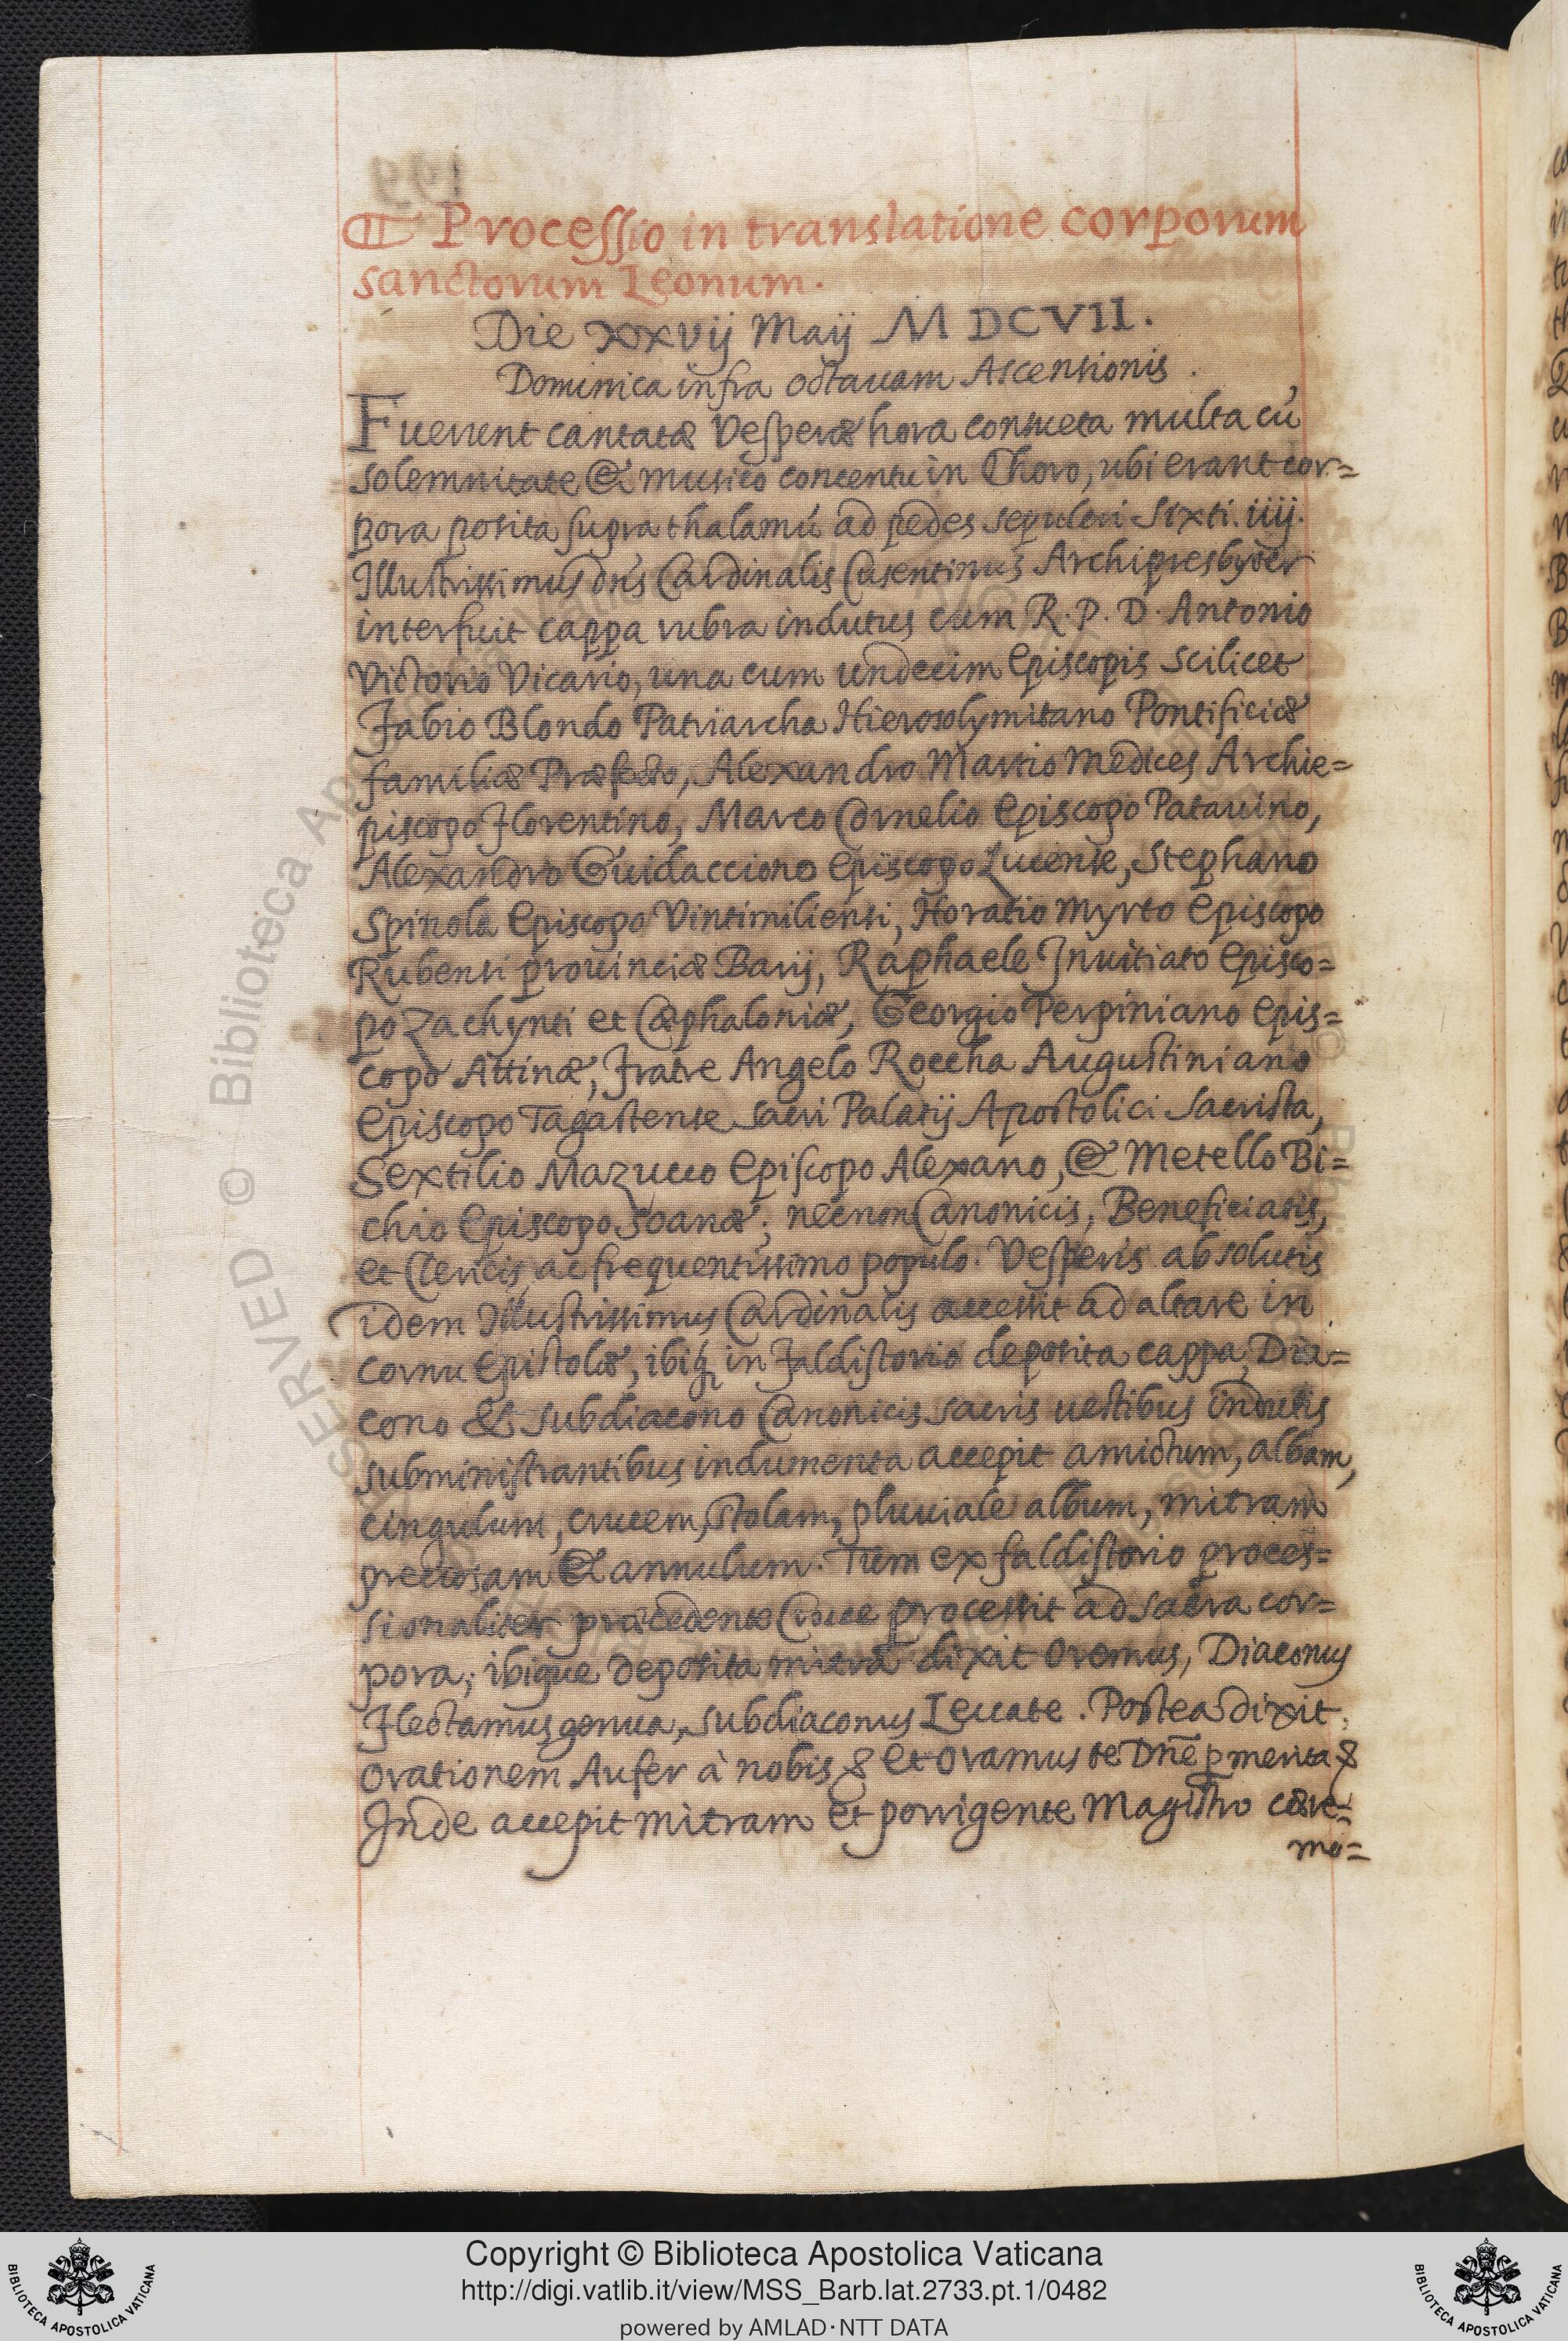 ¶ Processio in translatione corporum
sanctorum Leonum.
Die xxvij Maij MDCVII.
Dominica infra octauam Ascensionis.
Fuerunt cantatæ Vesperæ hora consueta multa cũ
solemnitate & musico concentu in Choro, ubi erant cor=
pora posita supra thalamũ ad pedes sepulcri Sixti. iiij.
Illustrissimus dñs Cardinalis Cusentinus Archipresbyter
interfuit cappa rubra indutus cum R. P. D. Antonio
Victorio Vicario, una cum undecim Episcopis scilicet
Fabio Blondo Patriarcha Hierosolymitano Pontificiæ
familiæ Præfecto, Alexandro Martio Medices Archie=
piscopo Florentino, Marco Cornelio Episcopo Patauino,
Alexandro Guidacciono Episcopo Lucense, Stephano
Spinola Episcopo Vintimiliensi, Horatio Myrto Episcopo
Rubensi prouinciæ Barij, Raphaele Inuitiato Episco=
po Zachynti et Cæphaloniæ, Georgio Perpiniano Epis=
copo Attinæ, Fratre Angelo Roccha Augustiniano
Episcopo Tagastense sacri Palatij Apostolici Sacrista,
Sextilio Mazucco Episcopo Alexano, & Metello Bi=
chio Episcopo Soanæ; necnon Canonicis, Beneficiatis,
et Clericis ac frequentissimo populo. Vesperis absolutis
idem Illustrissimus Cardinalis accessit ad altare in
cornu Epistolæ, ibiq; in Faldistorio deposita cappa, Dia=
cono & Subdiacono Canonicis sacris uestibus indutis
subministrantibus indumenta accepit amictum, albam,
cingulum, crucem, stolam, pluuiale album, mitram
preciosam & annulum. Tum ex faldistorio proces=
sionaliter præcedente Cruce processit ad sacra cor=
pora; ibique deposita mitra dixit Oremus, Diaconus
Flectamus genua, Subdiaconus Leuate. Postea dixit
orationem Aufer à nobis & Et Oramus te Dñe p merita &
Inde accepit mitram et porrigente Magistro cære=
mo=
© Biblioteca Apostolica Vaticana
RESERVED
Copyright © Biblioteca Apostolica Vaticana
http://digi.vatlib.it/view/MSS_Barb.lat.2733.pt.1/0482
powered by AMLAD·NTT DATA
BIBLIOTECA APOSTOLICA VATICANA
BIBLIOTECA APOSTOLICA VATICANA